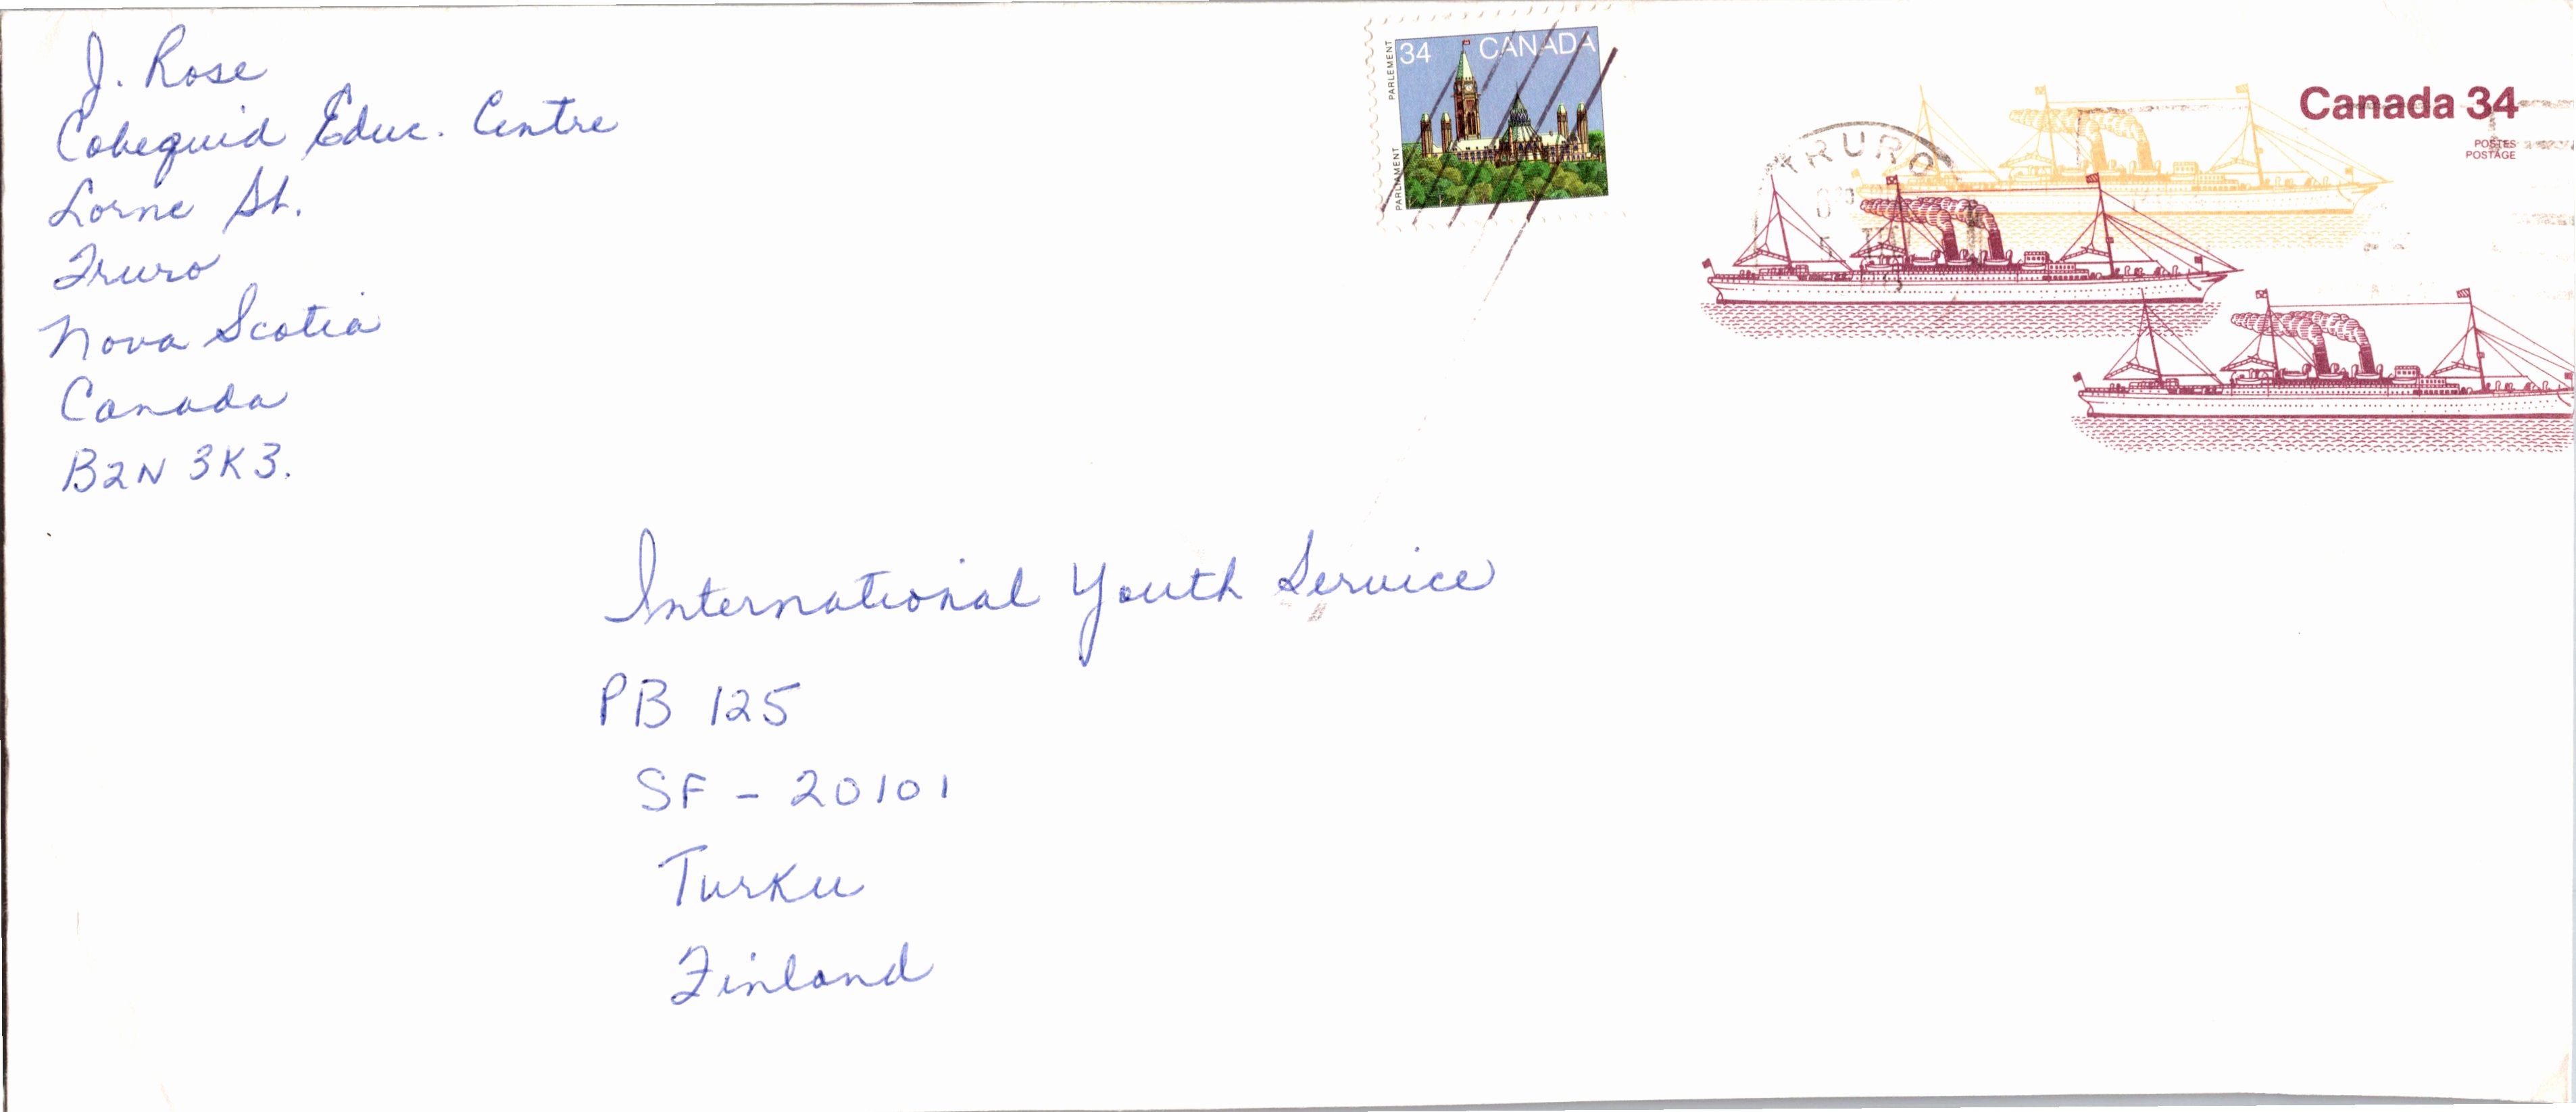 J. Rose
Cobequid Educ. Centre
Lorne St.
Truro
Nova Scotia
Canada
B2N 3K3.
PARLIAMENT PARLEMENT
34 CANADA
Canada 34
POSTES
POSTAGE
TRURO
International Youth Service
PB 125
SF - 20101
Turku
Finland